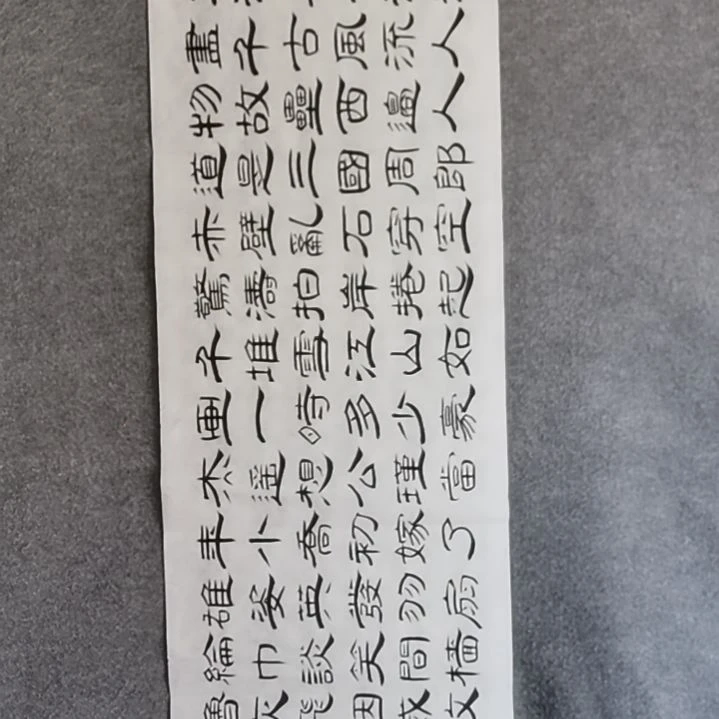 盡千古風流人
物故壘西邊人
道是三國周郎
赤壁亂石穿空
驚濤拍岸捲起
千堆雪江山如
畫一時多少豪
杰遥想公瑾當
年小喬初嫁了
雄姿英發羽扇
綸巾談笑間檣